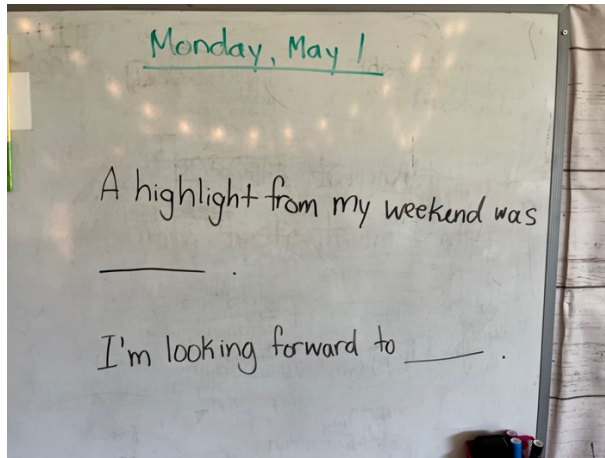 Monday, May 1
A highlight from my weekend was
______.
I'm looking forward to _____.